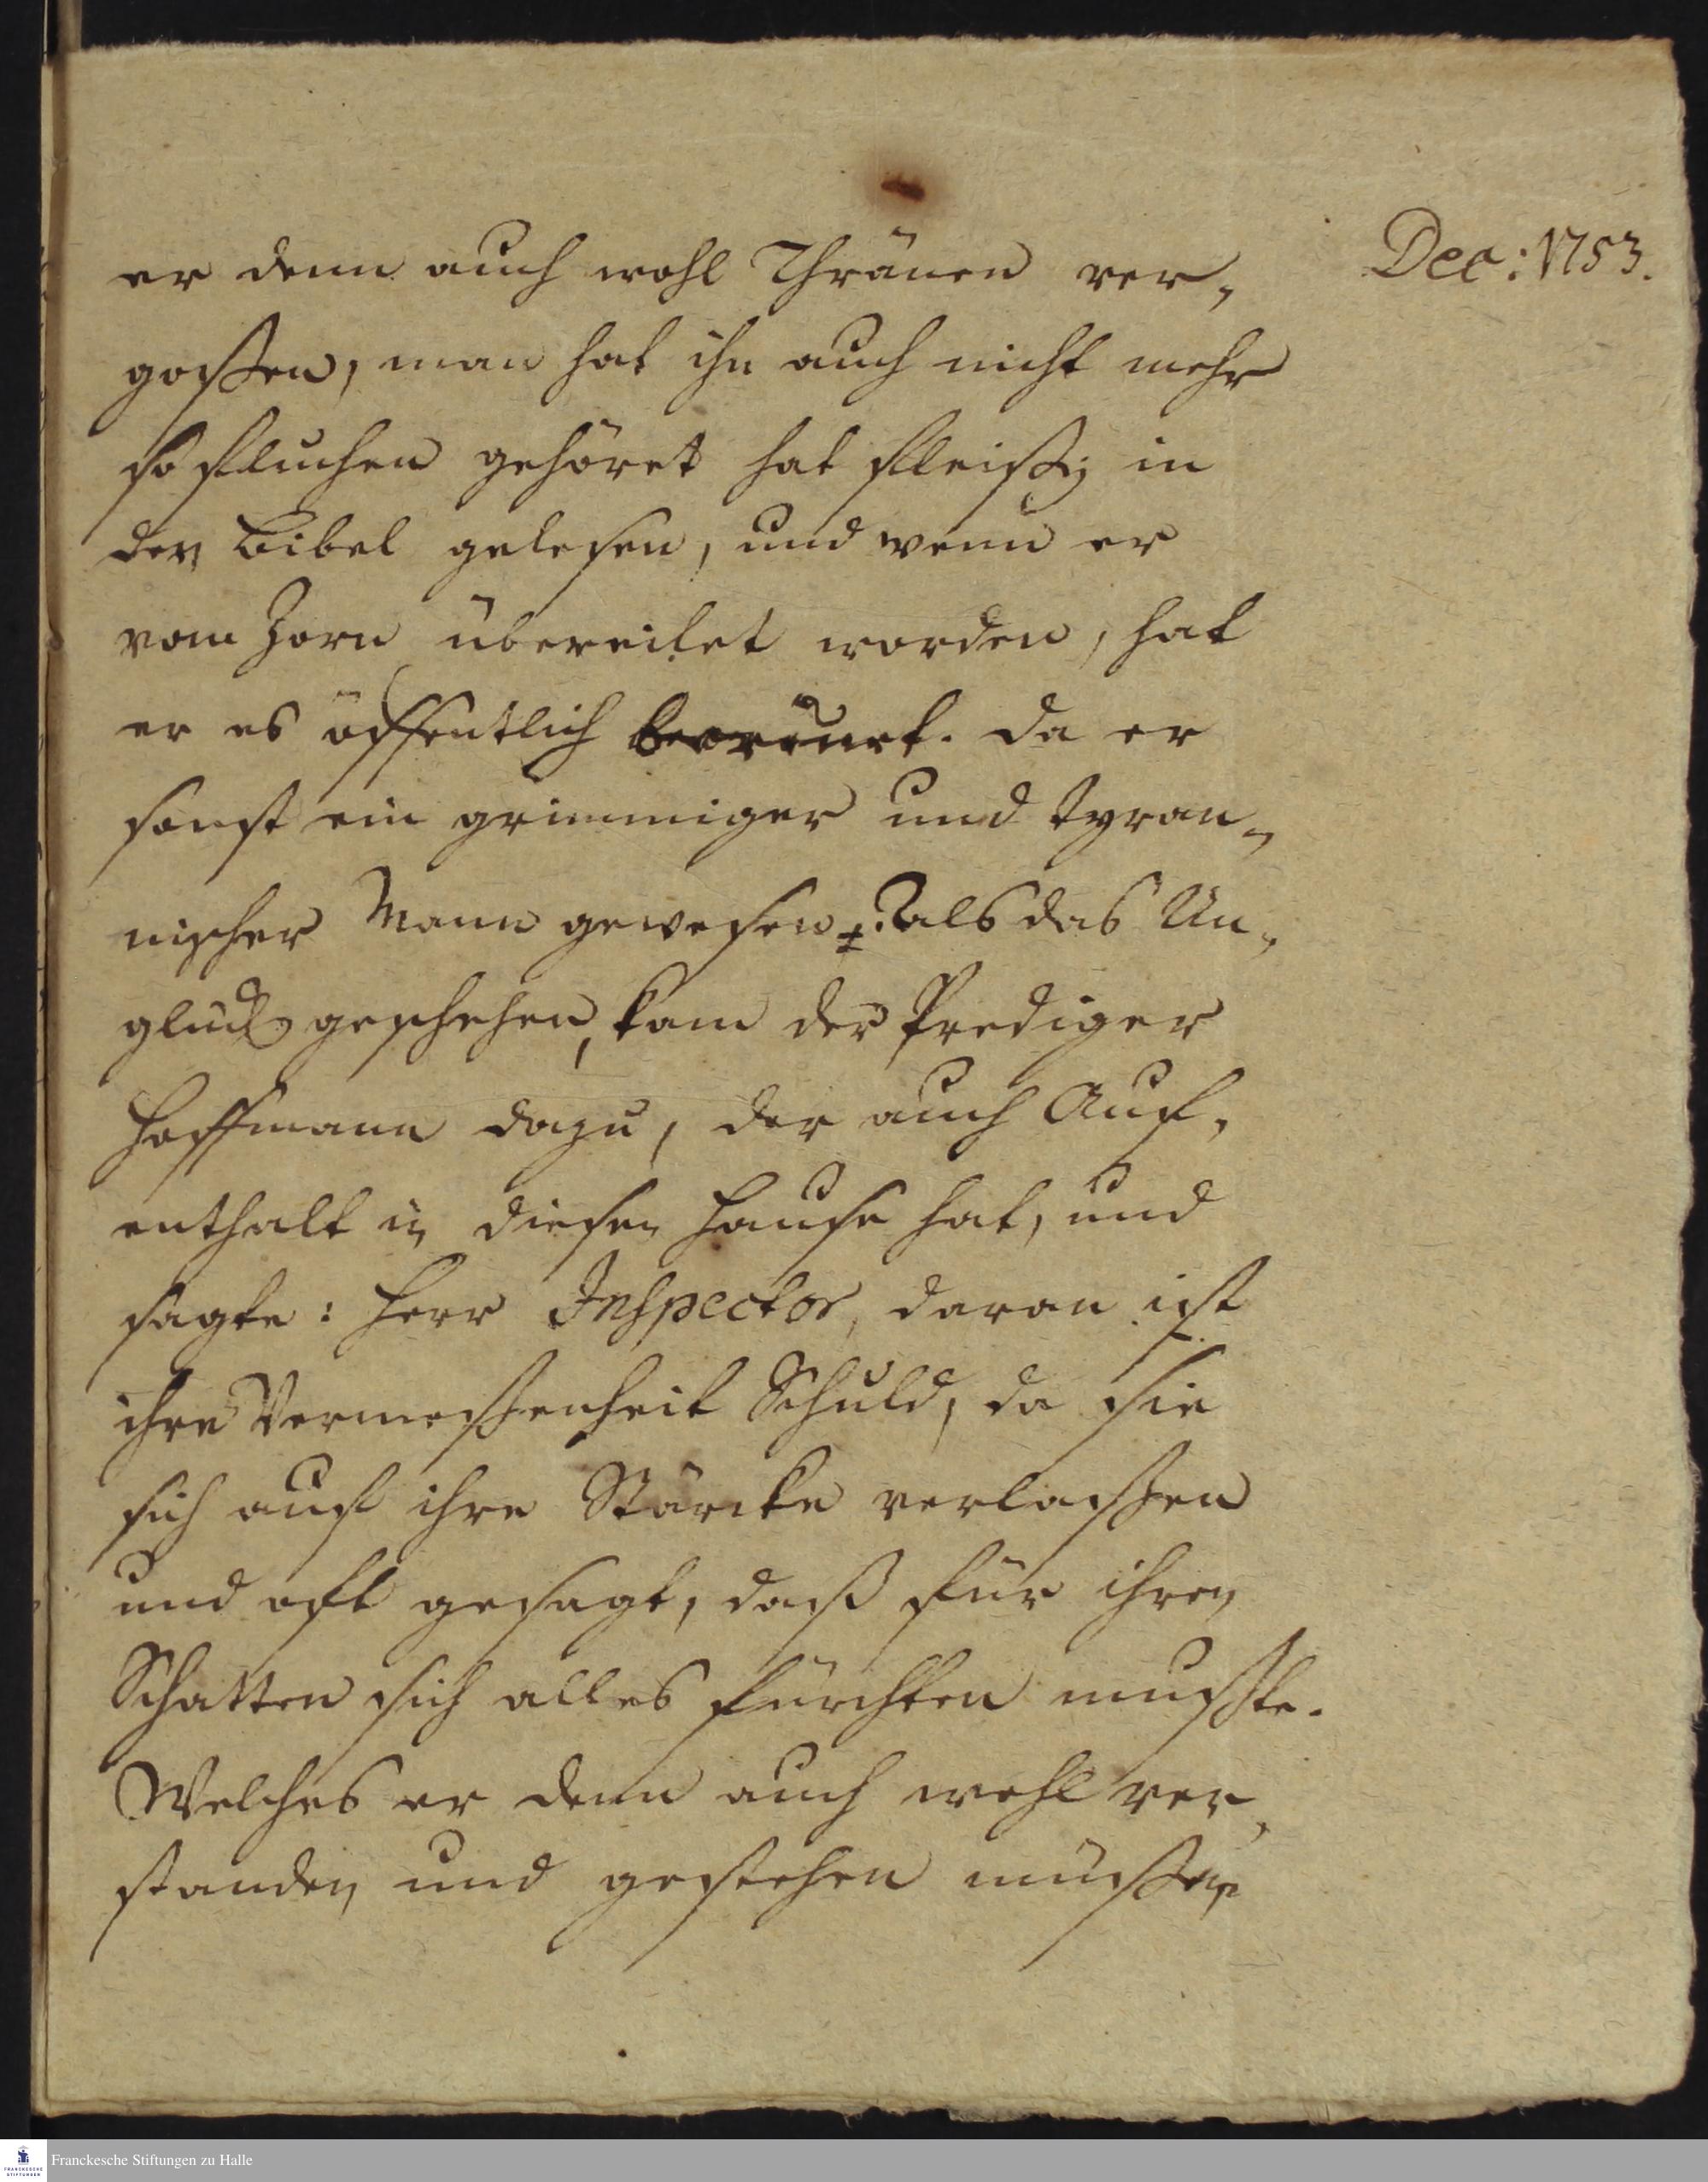 Dec: 1753.
er denn auch wohl Thränen ver-
goßen, man hat ihn auch nicht mehr
so fluchen gehöret hat fleißig in
der Bibel gelesen, und wenn er
vom Zorn übereilet worden, hat
er es öffentlich bereuet. da er
sonst ein grimmiger und tyran-
nischer Mann gewesen. als das Un-
glück geschehen, kam der Prediger
Hoffmann dazu, der auch Auf-
enthalt in diesen Hause hat, und
sagte: Herr Inspector, daran ist
ihre Vermeßenheit Schuld, da sie
sich auf ihre Stärcke verlaßen
und oft gesagt, daß für ihren
Schatten sich alles fürchten mußte.
Welches er denn auch wohl ver-
standen und gestehen müßen
Franckesche Stiftungen zu Halle
FRANCKESCHE
STIFTUNGEN